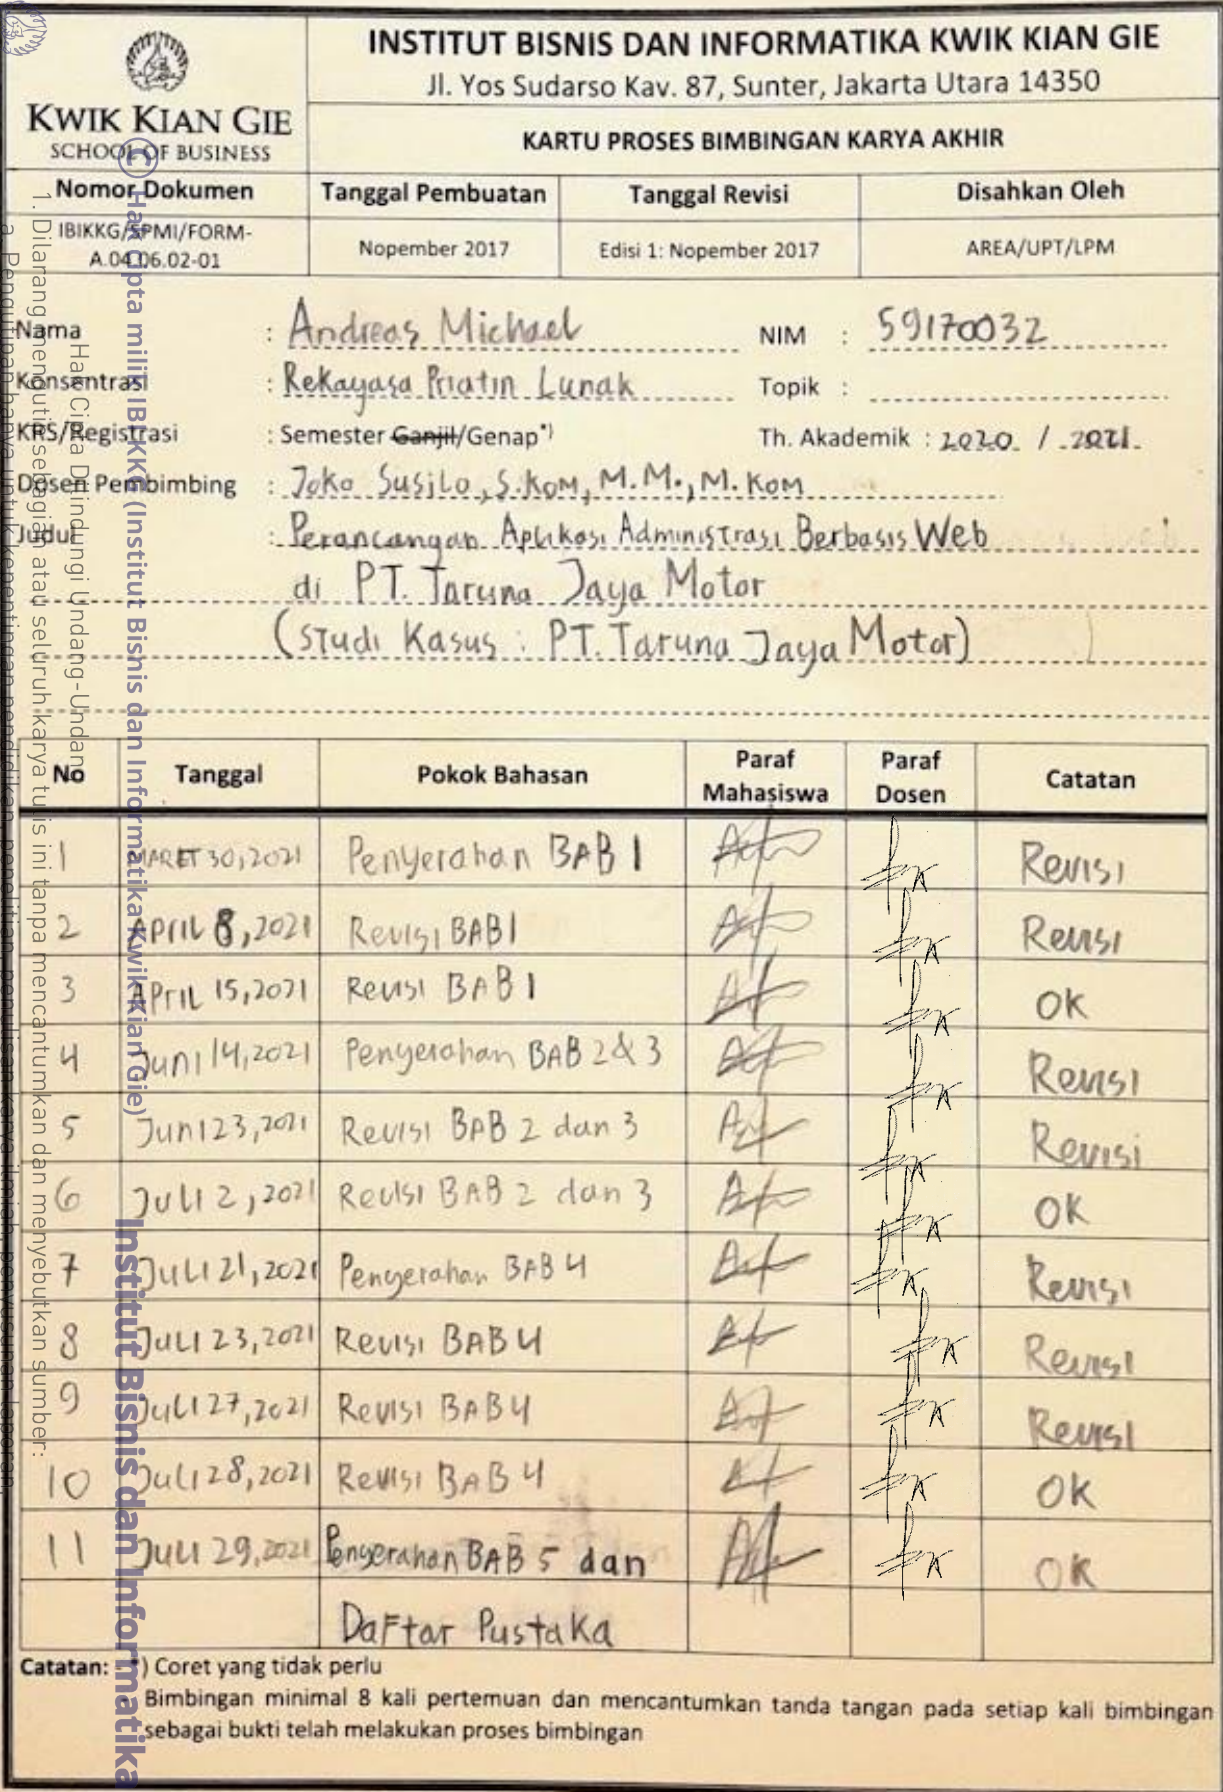 INSTITUT BISNIS DAN INFORMATIKA KWIK KIAN GIE
Jl. Yos Sudarso Kav. 87, Sunter, Jakarta Utara 14350
KWIK KIAN GIE
SCHOOL OF BUSINESS
KARTU PROSES BIMBINGAN KARYA AKHIR
Nomor Dokumen Tanggal Pembuatan Tanggal Revisi Disahkan Oleh
IBIKKG/SPMI/FORM-
A.04.06.02-01 Nopember 2017 Edisi 1: Nopember 2017 AREA/UPT/LPM
Nama : Andreas Michael NIM : 59170032
Konsentrasi : Rekayasa Priatin Lunak Topik :
KRS/Registrasi : Semester Ganjil/Genap*) Th. Akademik : 2020 / 2021
Dosen Pembimbing : Joko Susilo, S.KOM, M.M., M.KOM
Judul : Perancangan Aplikasi Administrasi Berbasis Web
di PT. Taruna Jaya Motor
(Studi Kasus : PT. Taruna Jaya Motor)
No Tanggal Pokok Bahasan Paraf Mahasiswa Paraf Dosen Catatan
1 MARET 30, 2021 Penyerahan BAB 1 Revisi
2 APRIL 8, 2021 Revisi BAB 1 Revisi
3 APRIL 15, 2021 Revisi BAB 1 OK
4 Juni 14, 2021 Penyerahan BAB 2 & 3 Revisi
5 Juni 23, 2021 Revisi BAB 2 dan 3 Revisi
6 Juli 2, 2021 Revisi BAB 2 dan 3 OK
7 Juli 21, 2021 Penyerahan BAB 4 Revisi
8 Juli 23, 2021 Revisi BAB 4 Revisi
9 Juli 27, 2021 Revisi BAB 4 Revisi
10 Juli 28, 2021 Revisi BAB 4 OK
11 Juli 29, 2021 Penyerahan BAB 5 dan OK
Daftar Pustaka
Catatan: *) Coret yang tidak perlu
Bimbingan minimal 8 kali pertemuan dan mencantumkan tanda tangan pada setiap kali bimbingan
sebagai bukti telah melakukan proses bimbingan
© Hak cipta milik IBI KKG (Institut Bisnis dan Informatika Kwik Kian Gie)
Institut Bisnis dan Informatika
Hak Cipta Dilindungi Undang-Undang
1. Dilarang mengutip sebagian atau seluruh karya tulis ini tanpa mencantumkan dan menyebutkan sumber:
a. Pengutipan hanya untuk kepentingan pendidikan, penelitian, penulisan karya ilmiah, penyusunan laporan,